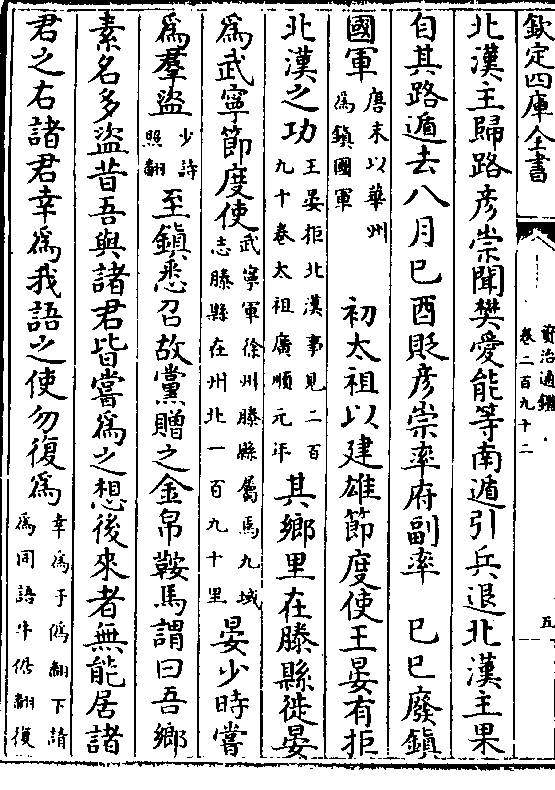 欽定四庫全書
資治通鑑
卷二百九十二
五
北漢主歸路彦崇聞樊愛能等南遁引兵退北漢主果
自其路遁去八月己酉貶彦崇率府副率　己巳廢鎮
國軍唐末以華州為鎮國軍　初太祖以建雄節度使王晏有拒
北漢之功王晏拒北漢事見二百九十卷太祖廣順元年其鄉里在滕縣徙晏
為武寧節度使武寧軍徐州滕縣屬焉九域志滕縣在州北一百九十里晏少時嘗
為羣盗少詩照翻至鎮悉召故黨贈之金帛鞍馬謂曰吾鄉
素名多盗昔吾與諸君皆嘗為之想後來者無能居諸
君之右諸君幸為我語之使勿復為幸為于偽翻下請為同語牛倨翻復